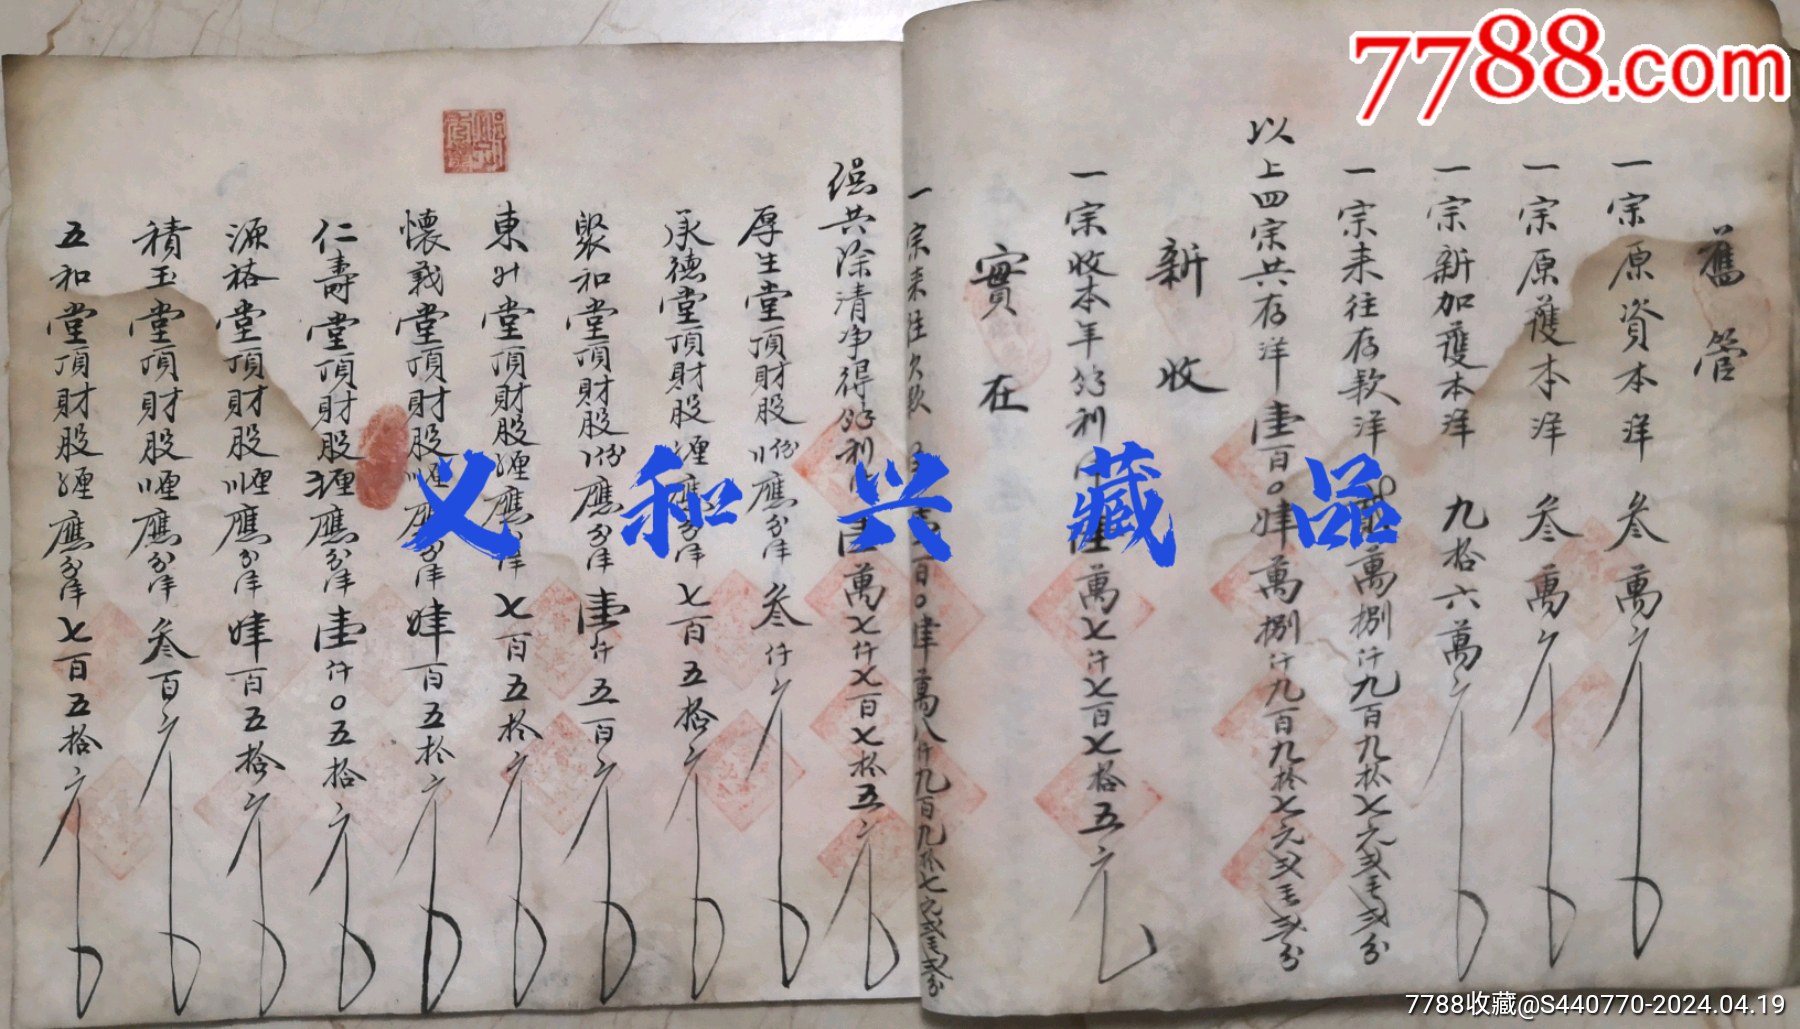 7788.com
舊管
一宗原資本洋叁萬元
一宗原護本洋叁萬元
一宗新加護本洋九拾六萬元
一宗來往存款洋萬捌仟九百九拾七元
以上四宗共存洋壹百〇肆萬捌仟九百九拾七元
新收
一宗收本年餘利萬七仟七百七拾五元
實在
一宗來往欠款百〇肆萬八仟九百九拾七元
共除清净得餘利萬七仟七百七拾五元
厚生堂頂財股〢份應分洋叁仟元
承德堂頂財股厘應分洋七百五拾元
聚和堂頂財股〡份應分洋壹仟五百元
東升堂頂財股厘應分洋七百五拾元
懷義堂頂財股厘應分洋肆百五拾元
仁壽堂頂財股厘應分洋壹仟〇五拾元
源裕堂頂財股〣厘應分洋肆百五拾元
積玉堂頂財股〢厘應分洋叁百元
五和堂頂財股厘應分洋七百五拾元
义和兴藏品
7788收藏@S440770-2024.04.19